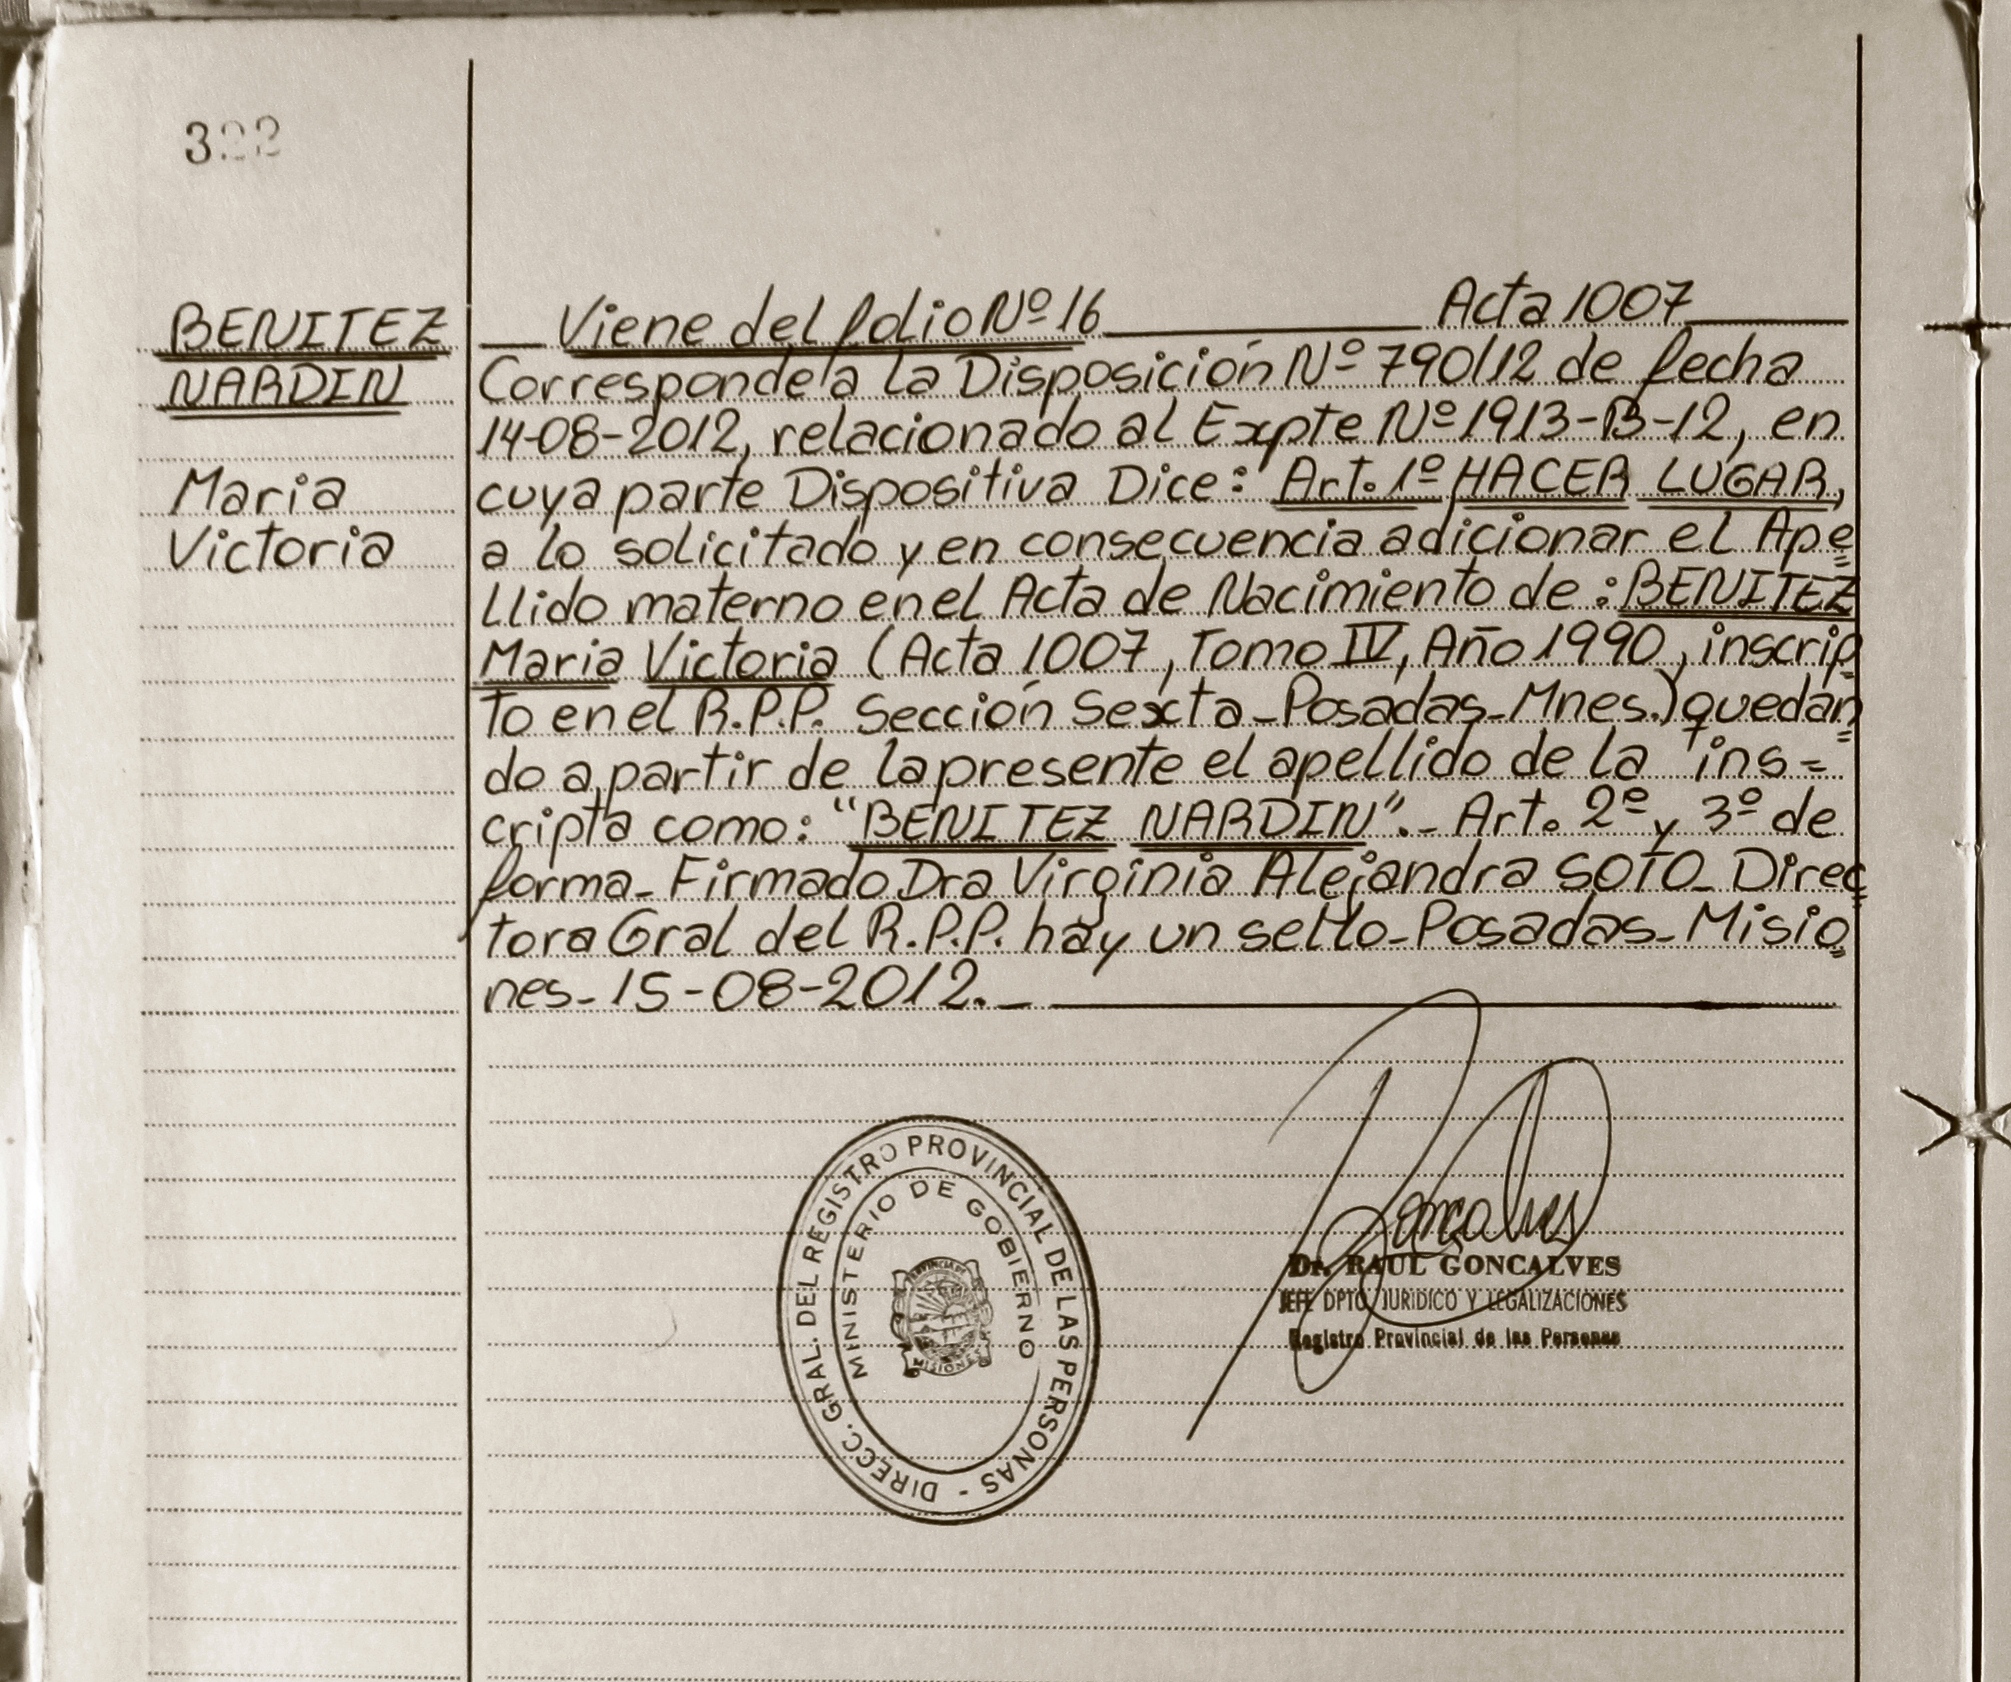 322
BENITEZ
NARDIN
Maria
Victoria
Viene del folio Nº 16 Acta 1007
Corresponde a la Disposición Nº 790/12 de fecha
14-08-2012, relacionado al Expte Nº 1913-B-12, en
cuya parte Dispositiva Dice: Art. 1º HACER LUGAR,
a lo solicitado y en consecuencia adicionar el Ape=
llido materno en el Acta de Nacimiento de: BENITEZ
Maria Victoria (Acta 1007, Tomo IV, Año 1990, inscrip=
to en el R.P.P. Sección Sexta-Posadas-Mnes.) quedan=
do a partir de la presente el apellido de la ins=
cripta como: "BENITEZ NARDIN".- Art. 2º y 3º de
forma- Firmado Dra Virginia Alejandra SOTO- Direc=
tora Gral del R.P.P. hay un sello-Posadas-Misio=
nes- 15-08-2012.-
DIRECC. GRAL. DEL REGISTRO PROVINCIAL DE LAS PERSONAS -
MINISTERIO DE GOBIERNO
PROVINCIA DE
MISIONES
Goncalves
Dr. RAUL GONCALVES
JEFE DPTO JURIDICO Y LEGALIZACIONES
Registro Provincial de las Personas